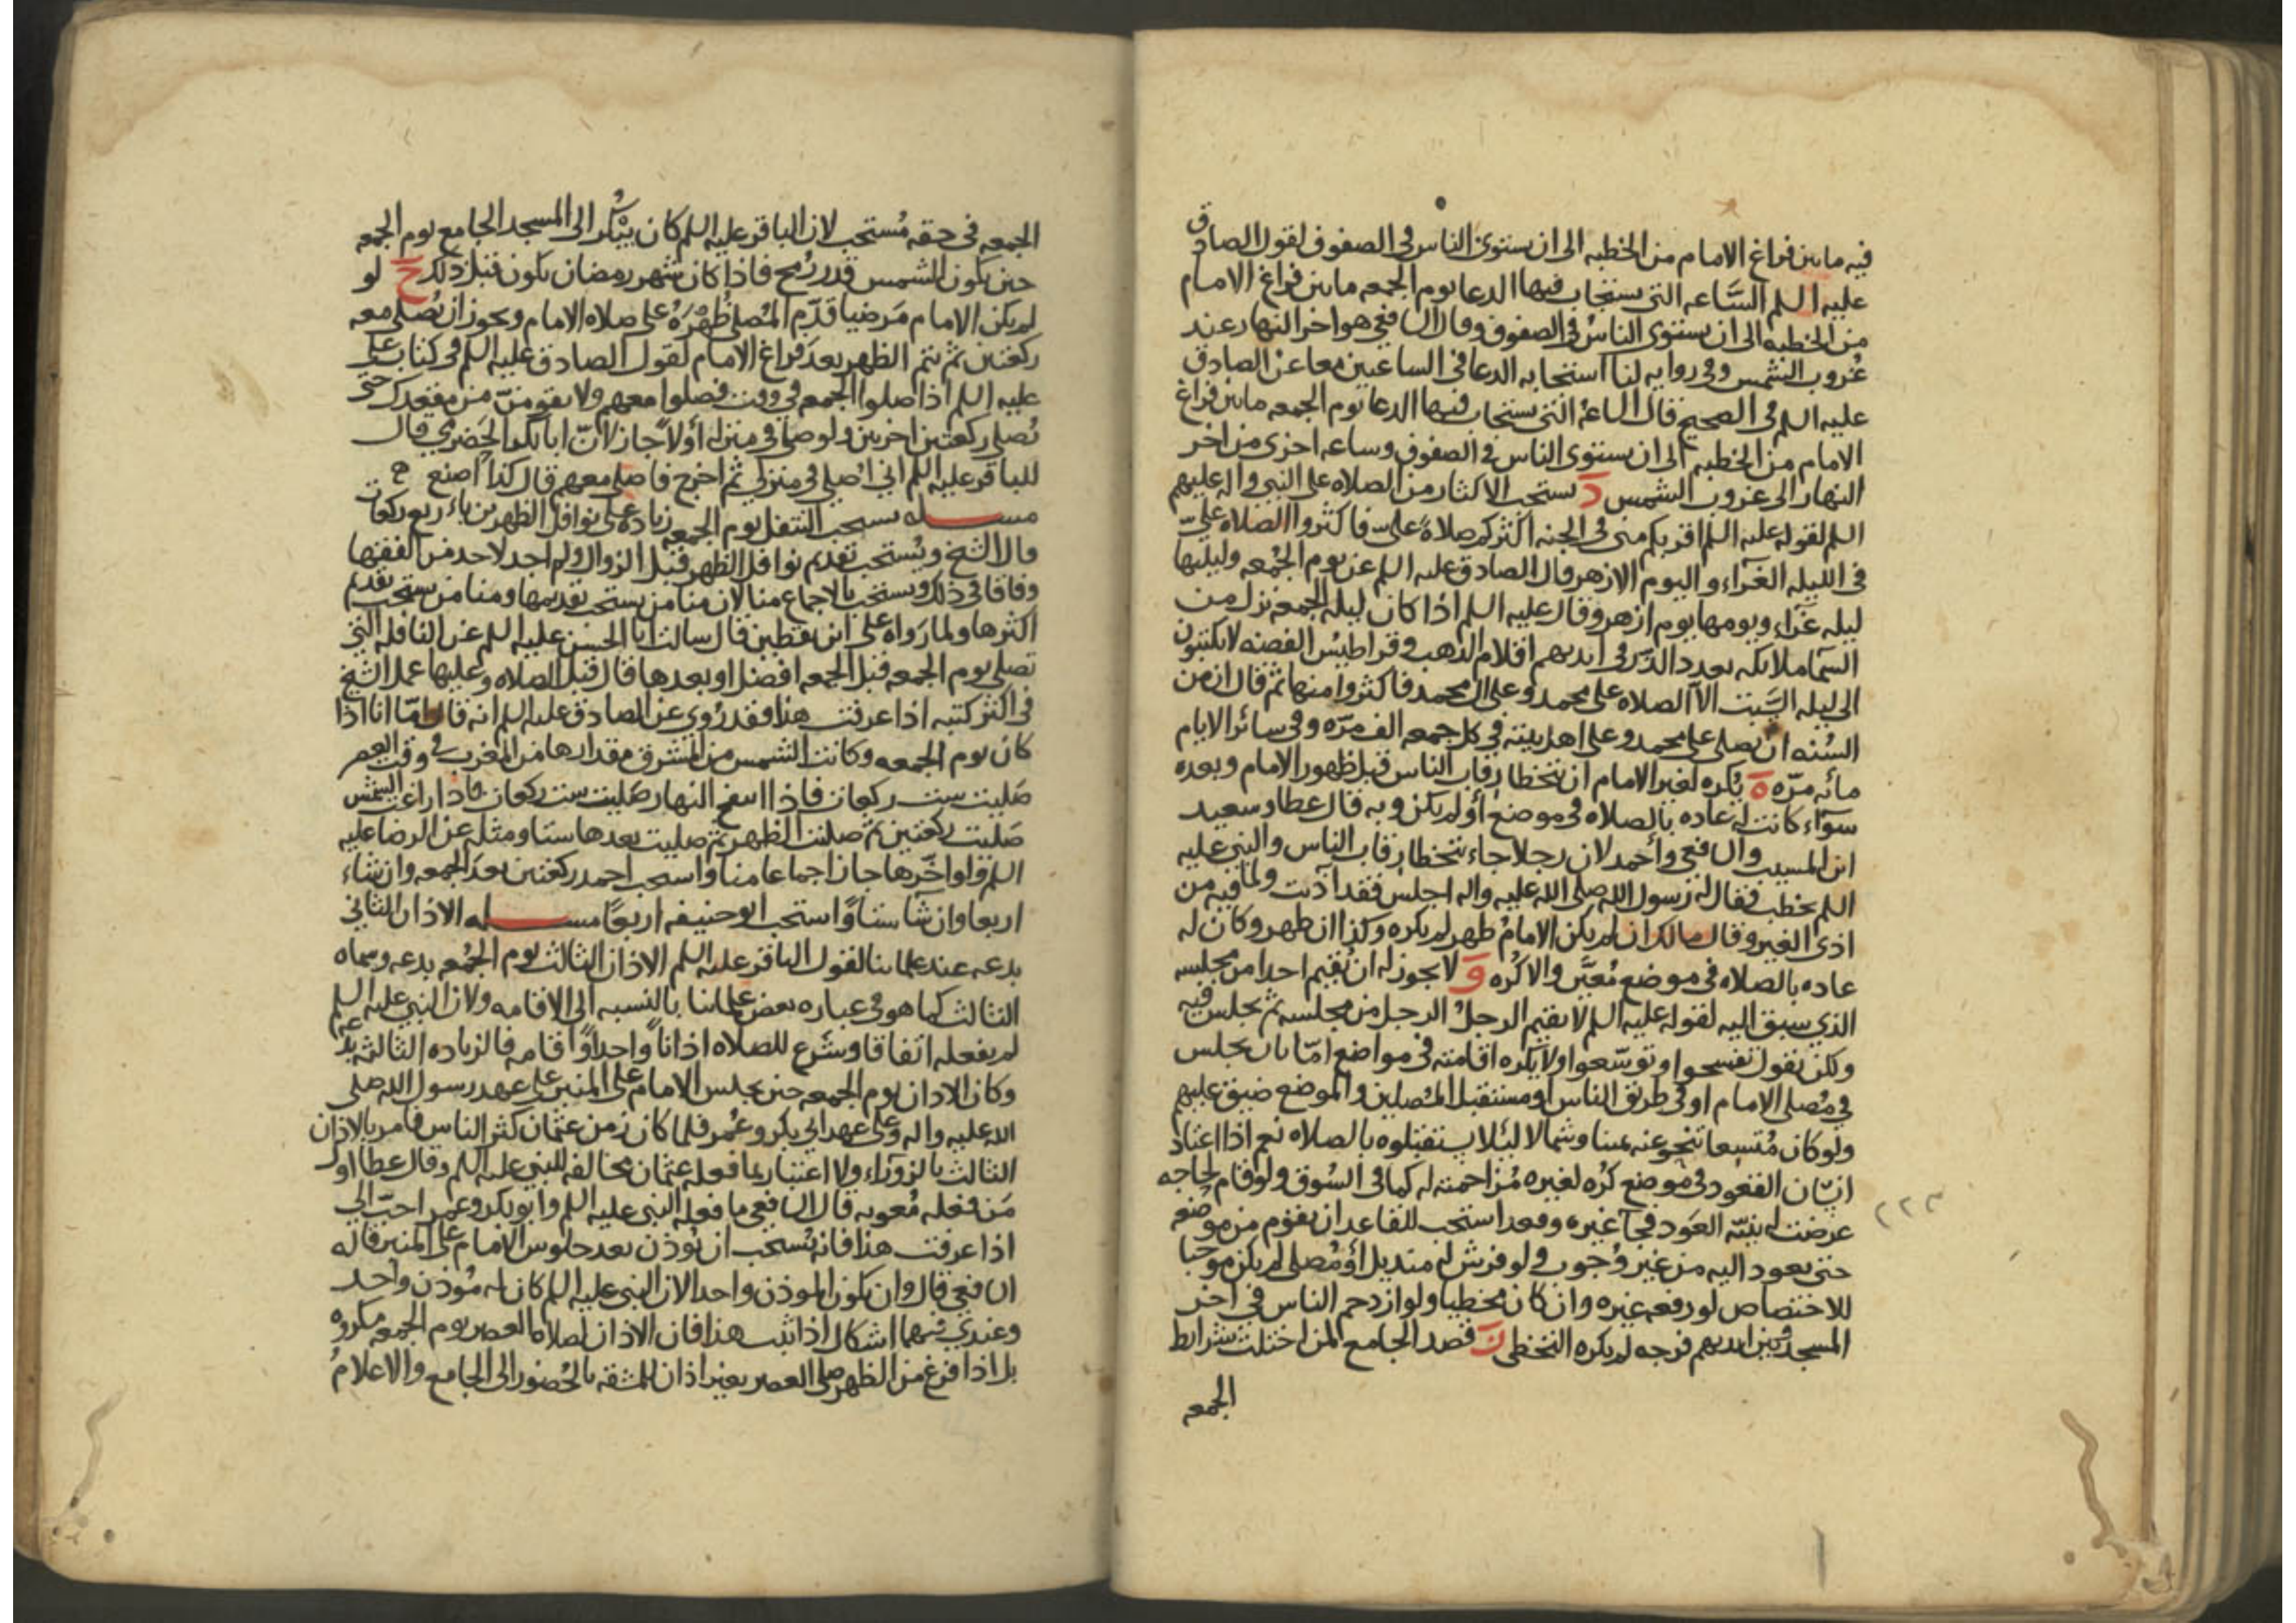 فيه ما بين فراغ الامام من الخطبه الى ان يستوى الناس فى الصفوف لقول الصادق
عليه السلم السَّاعه التى يستجاب فيها الدعا يوم الجمعه ما بين فراغ الامام
من الخطبه الى ان يستوى الناس فى الصفوف وقال الشافعى هو اخر النهار عند
غُروب الشمس وفى روايه لنا استجابه الدعا فى الساعتين معا عن الصادق
عليه السلم فى الصحيح قال الساعهُ التى يستجاب فيها الدعا يوم الجمعه ما بين فراغ
الامام من الخطبه الى ان يستوى الناس فى الصفوف وساعه اخرى من اخر
النهار الى غروب الشمس د يستحب الاكثار من الصلاه على النبى واله عليهم
السلم لقوله عليه السلم اقربكم منى فى الجنه اكثركم صلاهً علىّ فاكثروا الصلاه علىّ
فى الليله الغرّاء واليوم الازهر قال الصادق عليه السلم عن يوم الجُمعه وليلتها
ليله غَراء ويومها يوم ازهر وقال عليه السلم اذا كان ليله الجمعه نزل من
السّما ملائكه بعدد الذّر فى ايديهم اقلام الذهب وقراطيس الفضه لا يكتبون
الى ليله السَّبت الّا الصلاه على محمد وعلى ال محمد فاكثروا منها ثم قال ان من
السُنه ان يصلى على محمد وعلى اهل بيته فى كل جمعه الف مرّه وفى سائر الايام
مائه مرّه ه يُكره لغير الامام ان يتخطا رقاب الناس قبل ظهور الامام وبعده
سوآء كانت له عاده بالصلاه فى موضع أو لم يكن وبه قال عطا وسعيد
ابن المسيب والشافعى وأحمد لان رجلا جاء يتخطا رقاب الناس والنبى عليه
السلم يخطب فقال له رسول الله صلى الله عليه واله اجلس فقد آذيت ولما فيه من
اذى الغير وقال مالك ان لم يكن الامامُ ظهر لم يكره وكذا ان ظهر وكان له
عاده بالصلاه فى موضع مُعيَّن والا كُره و لا يجوز له ان يُقيم احدا من مجلسه
الذى سبق اليه لقوله عليه السلم لا يقيم الرجلُ الرجل من مجلسه ثم يجلس فيه
ولكن يقول تفسحوا او توسّعوا ولا يكره اقامته فى مواضع امّا بان يجلس
فى مُصلى الامام او فى طريق الناس او مستقبل المُصلين والموضع ضيق عليهم
ولو كان مُتسعا تنحوعنه يمينا وشمالا لئلا يستقبلوه بالصلاه نعم اذا اعتاد
انسَان القعود فى موضع كُره لغيره مُزاحمته له كما فى السُوق ولو قام لحاجه
عرضت له بنيّه العَود فجآ غيره وقعد استحب للقاعد ان يقوم من موضعه
حتى يعود اليه من غير وُجوب ولو فرش له منديل أو مُصلى لم يكن موجبا
للاختصاص لو رفعه غيره وان كان مخطيا ولو ازدحم الناس فى اخر
المسجد وبين ايديهم فرجه لم يكره التخطى ز قصد الجامع لمن اختلت شرائط
الجمعه
٢٢٣
الجمعه فى حقه مُستحب لان الباقر عليه السلم كان يبْكُر الى المسجد الجامع يوم الجمعه
حين تكون الشمس قدر رُمح فاذا كان شهر رمضان يكون قبل ذلك ح لو
لم يكن الامام مَرضيا قدّم المُصلى ظُهْرَهُ على صلاه الامام ويجوز ان يُصلى معه
ركعتين ثم يتم الظهر بعد فراغ الامام لقول الصادق عليه السلم فى كتاب على
عليه السلم اذا صلوا الجمعه فى وقت فصلوا معهم ولا تقومنّ من مقعدك حتى
تُصلى ركعتين اخريين ولو صلى فى منزله أولاً جاز لانّ ابا بكر الحَضرمى قال
للباقر عليه السلم انى اُصلى فى منزلى ثم اخرج فاصلى معهم قال كذا اصنع
مسله يستحب التنفل يوم الجمعه زياده على نوافل الظهرين باربع ركعات
قال الشيخ ويُستحب تقديم نوافل الظهر قبل الزوال ولم اجد لاحد من الفقها
وفاقا فى ذلك ويستحب بالاجماع منا لان منا من يستحب تقديمها ومنا من يستحب تقديم
اكثرها ولما رَواه على ابن يقطين قال سالت ابا الحسن عليه السلم عن النافله التى
تصلى يوم الجمعه قبل الجمعه افضل او بعدها قال قبل الصلاه وعليها عمل الشيخ
فى اكثر كتبه اذا عرفت هذا فقد رُوى عن الصادق عليه السلم انه قال امّا انا اذا
كان يوم الجمعه وكانت الشمس من المشرق مقدارها من المغرب فى وقت العصر
صَليت ست ركعات فاذا انتفخ النهار صَليت ست ركعات فاذا زاغت الشمس
صَليت ركعتين ثم صليت الظهر ثم صليت بعدها ستا ومثله عن الرضا عليه
السلم ولو اخّرها جاز اجماعا منا واستحب احمد ركعتين بعد الجمعه وان شاء
اربعا وان شا ستاً واستحب ابو حنيفه اربعًا مسله الاذان الثانى
بدعه عند علمائنا لقول الباقر عليه السلم الاذان الثالث يوم الجُمعه بدعه وسماه
الثالث كما هو فى عباره بعض علمائنا بالنسبه الى الاقامه ولان النبى عليه السلم
لم يفعله اتفاقا وشَرع للصلاه اذاناً واحداً واقامه فالزياده الثالثه بدعه
وكان الاذان يوم الجمعه حين يجلس الامام على المنبر على عهد رسول الله صلى
الله عليه واله وعلى عهد ابى بكر وعُمر فلما كان زمن عثمان كثر الناس فامر بالاذان
الثالث بالزورَاء ولا اعتبار بما فعله عثمان مخالفه للنبى عليه السلم وقال عطا اول
مَن فعله مُعويه قال الشافعى ما فعله النبى عليه السلم وابو بكر وعمر احبّ الى
اذا عرفت هذا فانه يُستحب ان يُوذن بعد جلوس الامام على المنبر قاله
الشافعى قال وان يكون الموذن واحدا لان النبى عليه السلم كان له مُوذن واحد
وعندى فيهما اشكال اذا ثبت هذا فان الاذان لصلاه العصر يوم الجمعه مكروه
بل اذا فرغ من الظهر صلى العصر بغير اذان للمشقه بالحُضور الى الجامع والاعلامُ